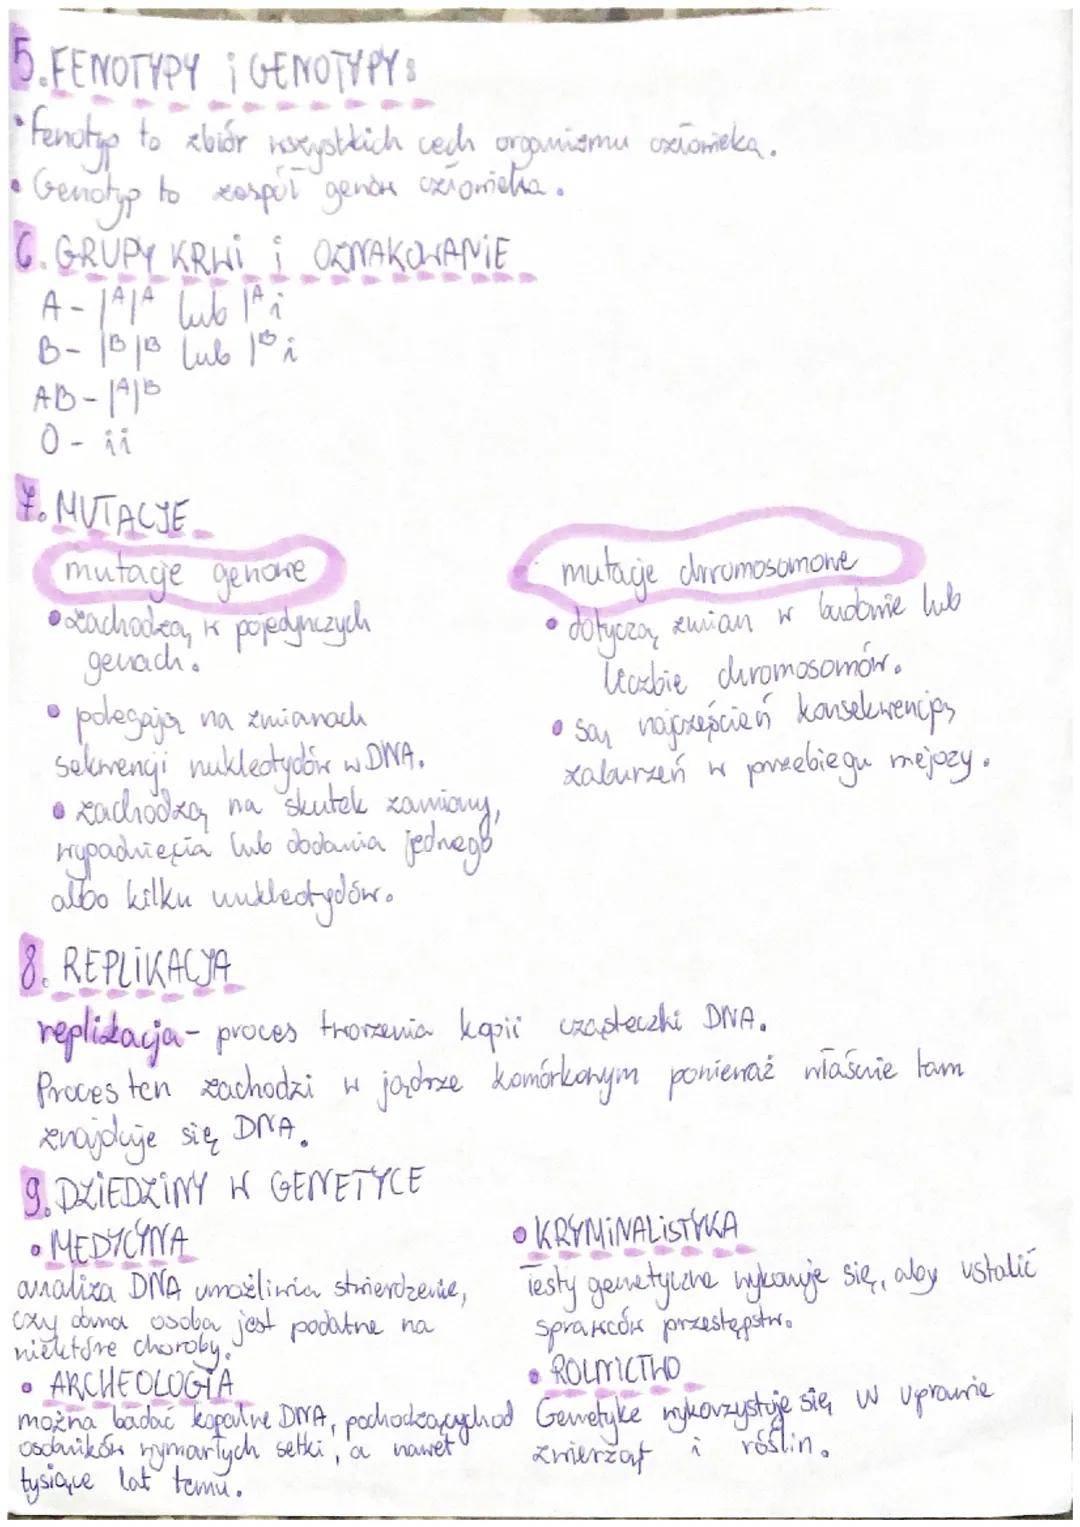 5. FENOTYPY i GENOTYPY:
• Fenotyp to zbiór wszystkich cech organizmu człowieka.
• Genotyp to zespół genów człowieka.
6. GRUPY KRWi i OZNAKOWANiE
A - |ᴬ|ᴬ lub |ᴬ i
B - |ᴮ|ᴮ lub |ᴮ i
AB - |ᴬ|ᴮ
O - ii
7. MUTACJE
mutacje genowe
• zachodzą w pojedynczych
genach.
• polegają na zmianach
sekwencji nukleotydów w DNA.
• zachodzą na skutek zamiany,
wypadnięcia lub dodania jednego
albo kilku nukleotydów.
mutacje chromosomowe
• dotyczą zmian w budowie lub
liczbie chromosomów.
• są najczęściej konsekwencją
zaburzeń w przebiegu mejozy.
8. REPLiKACJA
replikacja - proces tworzenia kopii cząsteczki DNA.
Proces ten zachodzi w jądrze komórkowym ponieważ właśnie tam
znajduje się DNA.
9. DZiEDZiNY W GENETYCE
• MEDYCYNA
analiza DNA umożliwia stwierdzenie,
czy dana osoba jest podatna na
niektóre choroby.
• ARCHEOLOGiA
można badać kopalne DNA, pochodzących od
osobników wymarłych setki, a nawet
tysiące lat temu.
• KRYMiNALiSTYKA
Testy genetyczne wykonuje się, aby ustalić
sprawców przestępstw.
• ROLNiCTWO
Genetykę wykorzystuje się w uprawie
zwierząt i roślin.